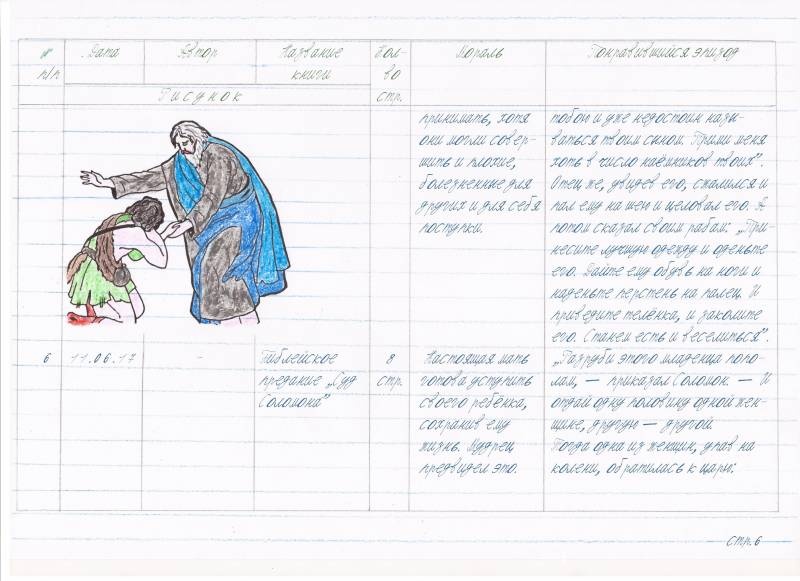 № п/п
Дата
Автор
Название книги
Кол-во стр.
Мораль
Понравившийся эпизод
Рисунок
принимать, хотя
они могли совер-
шить и плохие,
болезненные для
других и для себя
поступки.
тобою и уже недостоин назы-
ваться твоим сыном. Прими меня
хоть в число наёмников твоих".
Отец же, увидев его, сжалился и
пал ему на шею и целовал его. А
потом сказал своим рабам: „При-
несите лучшую одежду и оденьте
его. Дайте ему обувь на ноги и
наденьте перстень на палец. И
приведите телёнка, и заколите
его. Станем есть и веселиться".
6
11.06.17
-
Библейское
предание „Суд
Соломона"
8
стр.
Настоящая мать
готова уступить
своего ребёнка,
сохранив ему
жизнь. Мудрец
предвидел это.
„Разруби этого младенца попо-
лам, — приказал Соломон. — И
отдай одну половину одной жен-
щине, другую — другой.
Тогда одна из женщин, упав на
колени, обратилась к царю:
стр. 6